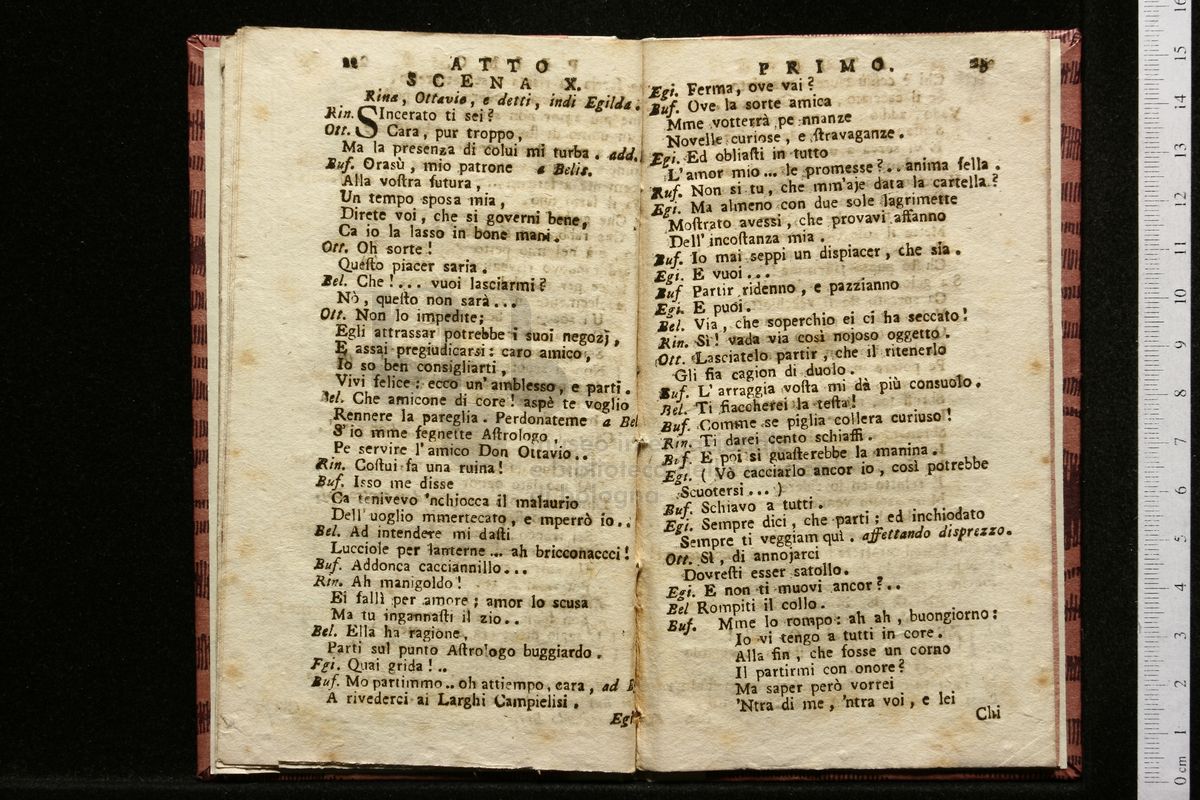 22 ATTO
SCENA X.
Rina, Ottavio, e detti, indi Egilda.
Rin. SIncerato ti sei?
Ott. Cara, pur troppo,
Ma la presenza di colui mi turba. add.
Buf. Orasù, mio patrone a Belis.
Alla vostra futura,
Un tempo sposa mia,
Direte voi, che si governi bene,
Ca io la lasso in bone mani.
Ott. Oh sorte!
Questo piacer saria.
Bel. Che!... vuoi lasciarmi?
Nò, questo non sarà...
Ott. Non lo impedite;
Egli attrassar potrebbe i suoi negozj,
E assai pregiudicarsi: caro amico,
Io so ben consigliarti,
Vivi felice: ecco un'amblesso, e parti.
Bel. Che amicone di core! aspè te voglio
Rennere la pareglia. Perdonateme a Bel
S'io mme fegnette Astrologo,
Pe servire l'amico Don Ottavio..
Rin. Costui fa una ruina!
Buf. Isso me disse
Ca tenivevo 'nchiocca il malaurio
Dell'uoglio mmertecato, e mperrò io..
Bel. Ad intendere mi dasti
Lucciole per lanterne... ah bricconaccci!
Buf. Addonca cacciannillo...
Rin. Ah manigoldo!
Ei fallì per amore; amor lo scusa
Ma tu ingannasti il zio..
Bel. Ella ha ragione,
Parti sul punto Astrologo buggiardo.
Egi. Quai grida!..
Buf. Mo partimmo.. oh attiempo, cara, ad E
A rivederci ai Larghi Campielisi.
Egi
PRIMO. 23
Egi. Ferma, ove vai?
Buf. Ove la sorte amica
Mme votterrà pe nnanze
Novelle curiose, e stravaganze.
Egi. Ed obliasti in tutto
L'amor mio... le promesse?.. anima fella.
Buf. Non si tu, che mm'aje data la cartella?
Egi. Ma almeno con due sole lagrimette
Mostrato avessi, che provavi affanno
Dell'incostanza mia.
Buf. Io mai seppi un dispiacer, che sia.
Egi. E vuoi...
Buf Partir ridenno, e pazzianno
Egi. E puoi.
Bel. Via, che soperchio ei ci ha seccato!
Rin. Sì! vada via così nojoso oggetto.
Ott. Lasciatelo partir, che il ritenerlo
Gli fia cagion di duolo.
Buf. L'arraggia vosta mi dà più consuolo.
Bel. Ti fiaccherei la testa!
Buf. Comme se piglia collera curiuso!
Rin. Ti darei cento schiaffi.
Buf. E poi si guasterebbe la manina.
Egi. (Vò cacciarlo ancor io, così potrebbe
Scuotersi...)
Buf. Schiavo a tutti.
Egi. Sempre dici, che parti; ed inchiodato
Sempre ti veggiam quì. affettando disprezzo.
Ott. Sì, di annojarci
Dovresti esser satollo.
Egi. E non ti muovi ancor?..
Bel Rompiti il collo.
Buf. Mme lo rompo: ah ah, buongiorno:
Io vi tengo a tutti in core.
Alla fin, che fosse un corno
Il partirmi con onore?
Ma saper però vorrei
'Ntra di me, 'ntra voi, e lei
Chi